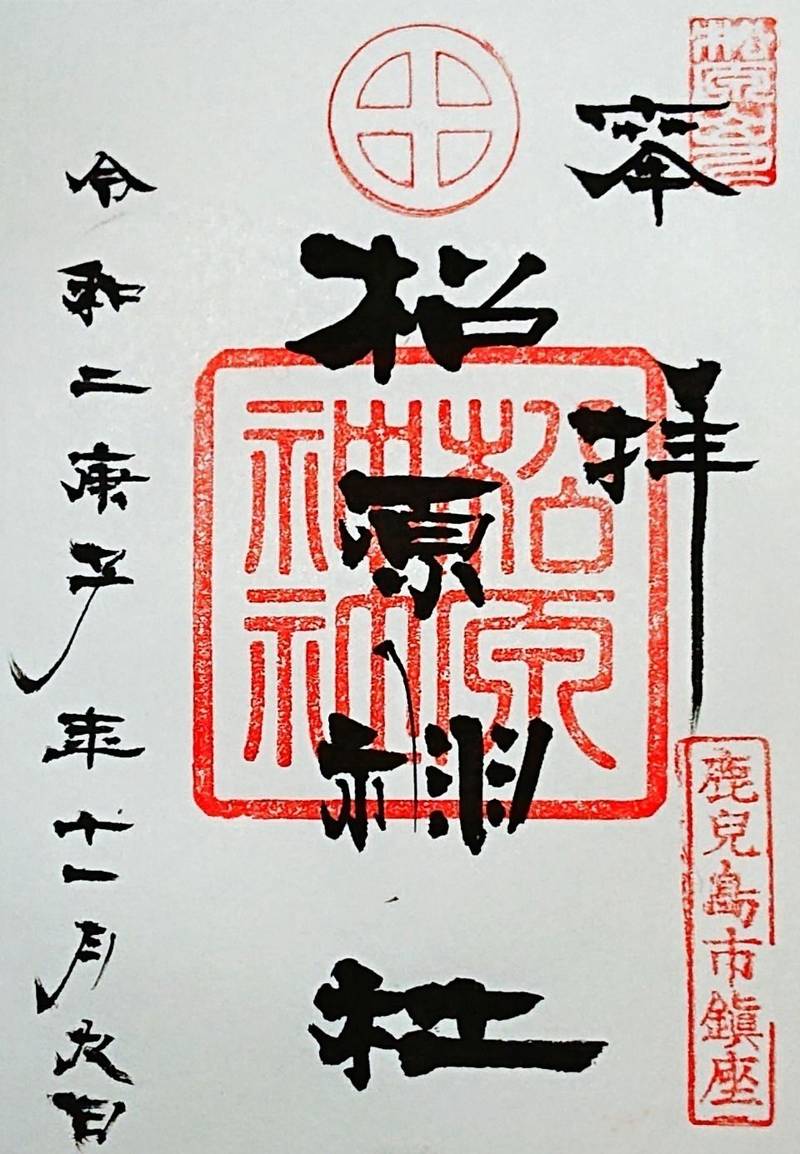 奉拝
鹿兒島市鎮座
松原神社
松原
神社
令和二庚子年十一月日